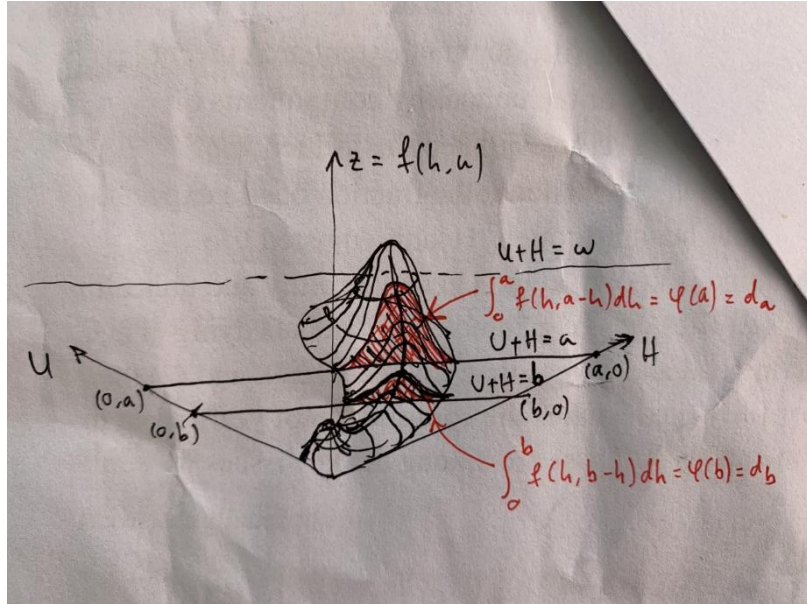 z = f(h,u)
U+H = ω
∫₀ᵃ f(h,a-h)dh = φ(a) = dₐ
U+H = a
U
H
(0,a)
(a,0)
U+H = b
(0,b)
(b,0)
∫₀ᵇ f(h,b-h)dh = φ(b) = d_b